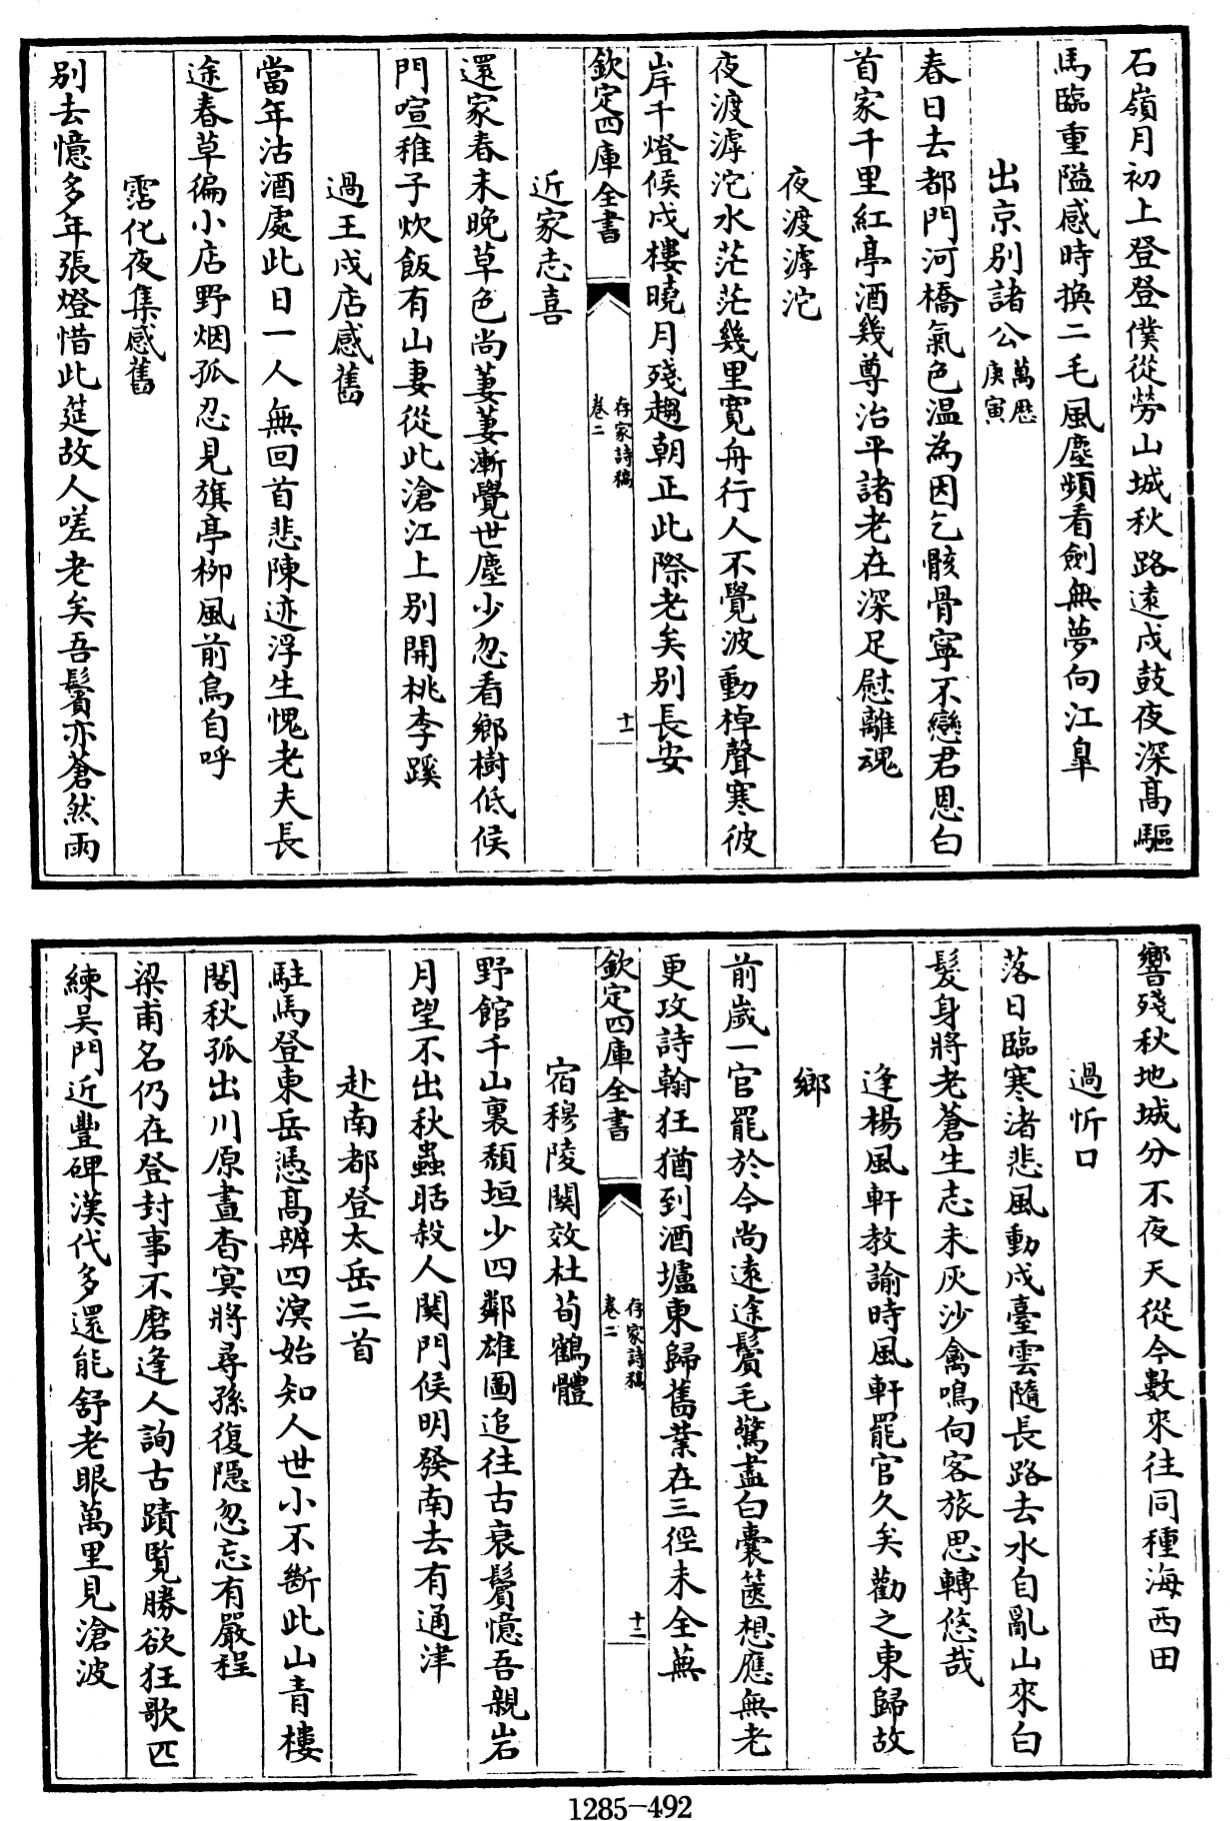 石嶺月初上登登僕從勞山城秋路遠戍鼓夜深高驅
馬臨重隘感時換二毛風塵頻看劍無夢向江臯
出京別諸公萬厯庚寅
春日去都門河橋氣色温為因乞骸骨寧不戀君恩白
首家千里紅亭酒幾尊治平諸老在深足慰離魂
夜渡滹沱
夜渡滹沱水茫茫幾里寛舟行人不覺波動棹聲寒彼
岸千燈候戍樓曉月殘趨朝正此際老矣别長安
欽定四庫全書
存家詩稿
卷二
十一
近家志喜
還家春未晚草色尚萋萋漸覺世塵少忽看鄉樹低候
門喧稚子炊飯有山妻從此滄江上别開桃李蹊
過王戍店感舊
當年沽酒處此日一人無回首悲陳迹浮生愧老夫長
途春草徧小店野烟孤忍見旗亭栁風前鳥自呼
霑化夜集感舊
别去憶多年張燈惜此筵故人嗟老矣吾鬢亦蒼然雨
響殘秋地城分不夜天從今數來往同種海西田
過忻口
落日臨寒渚悲風動戍臺雲隨長路去水自亂山來白
髮身將老蒼生志未灰沙禽鳴向客旅思轉悠哉
逢楊風軒教諭時風軒罷官久矣勸之東歸故
鄉
前歲一官罷於今尚遠途鬢毛驚盡白囊篋想應無老
更攻詩翰狂猶到酒壚東歸舊業在三徑未全蕪
欽定四庫全書
存家詩稿
卷二
十二
宿穆陵關效杜荀鶴體
野館千山裏頽垣少四鄰雄圖追往古衰鬢憶吾親岩
月望不出秋蟲聒殺人關門候明發南去有通津
赴南都登太岳二首
駐馬登東岳憑高辨四溟始知人世小不斷此山青樓
閣秋孤出川原晝杳冥將尋孫復隠忽忘有嚴程
梁甫名仍在登封事不磨逢人詢古蹟覧勝欲狂歌匹
練吴門近豐碑漢代多還能舒老眼萬里見滄波
1285-492